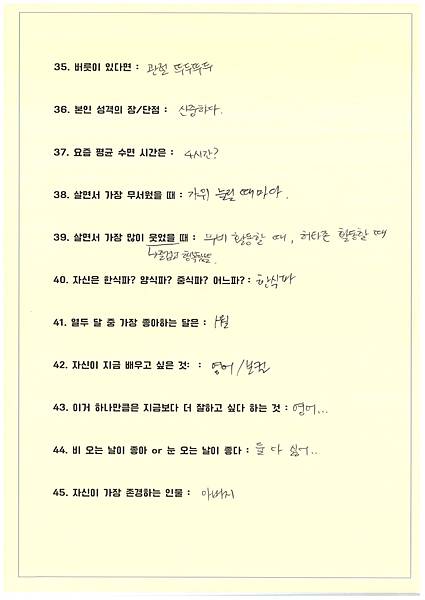 35. 버릇이 있다면 : 관절 뚜두뚜두
36. 본인 성격의 장/단점 : 신중하다.
37. 요즘 평균 수면 시간은 : 4시간?
38. 살면서 가장 무서웠을 때 : 가위 눌릴 때마다.
39. 살면서 가장 많이 웃었을 때 : 무비 활동할 때, 허타존 활동할 때
즐겁고 행복했을.
40. 자신은 한식파? 양식파? 중식파? 어느파? : 한식파
41. 열두 달 중 가장 좋아하는 달은 : 1월
42. 자신이 지금 배우고 싶은 것 : : 영어/보컬
43. 이거 하나만큼은 지금보다 더 잘하고 싶다 하는 것 : 영어...
44. 비 오는 날이 좋아 or 눈 오는 날이 좋다 : 둘 다 싫어..
45. 자신이 가장 존경하는 인물 : 아버지